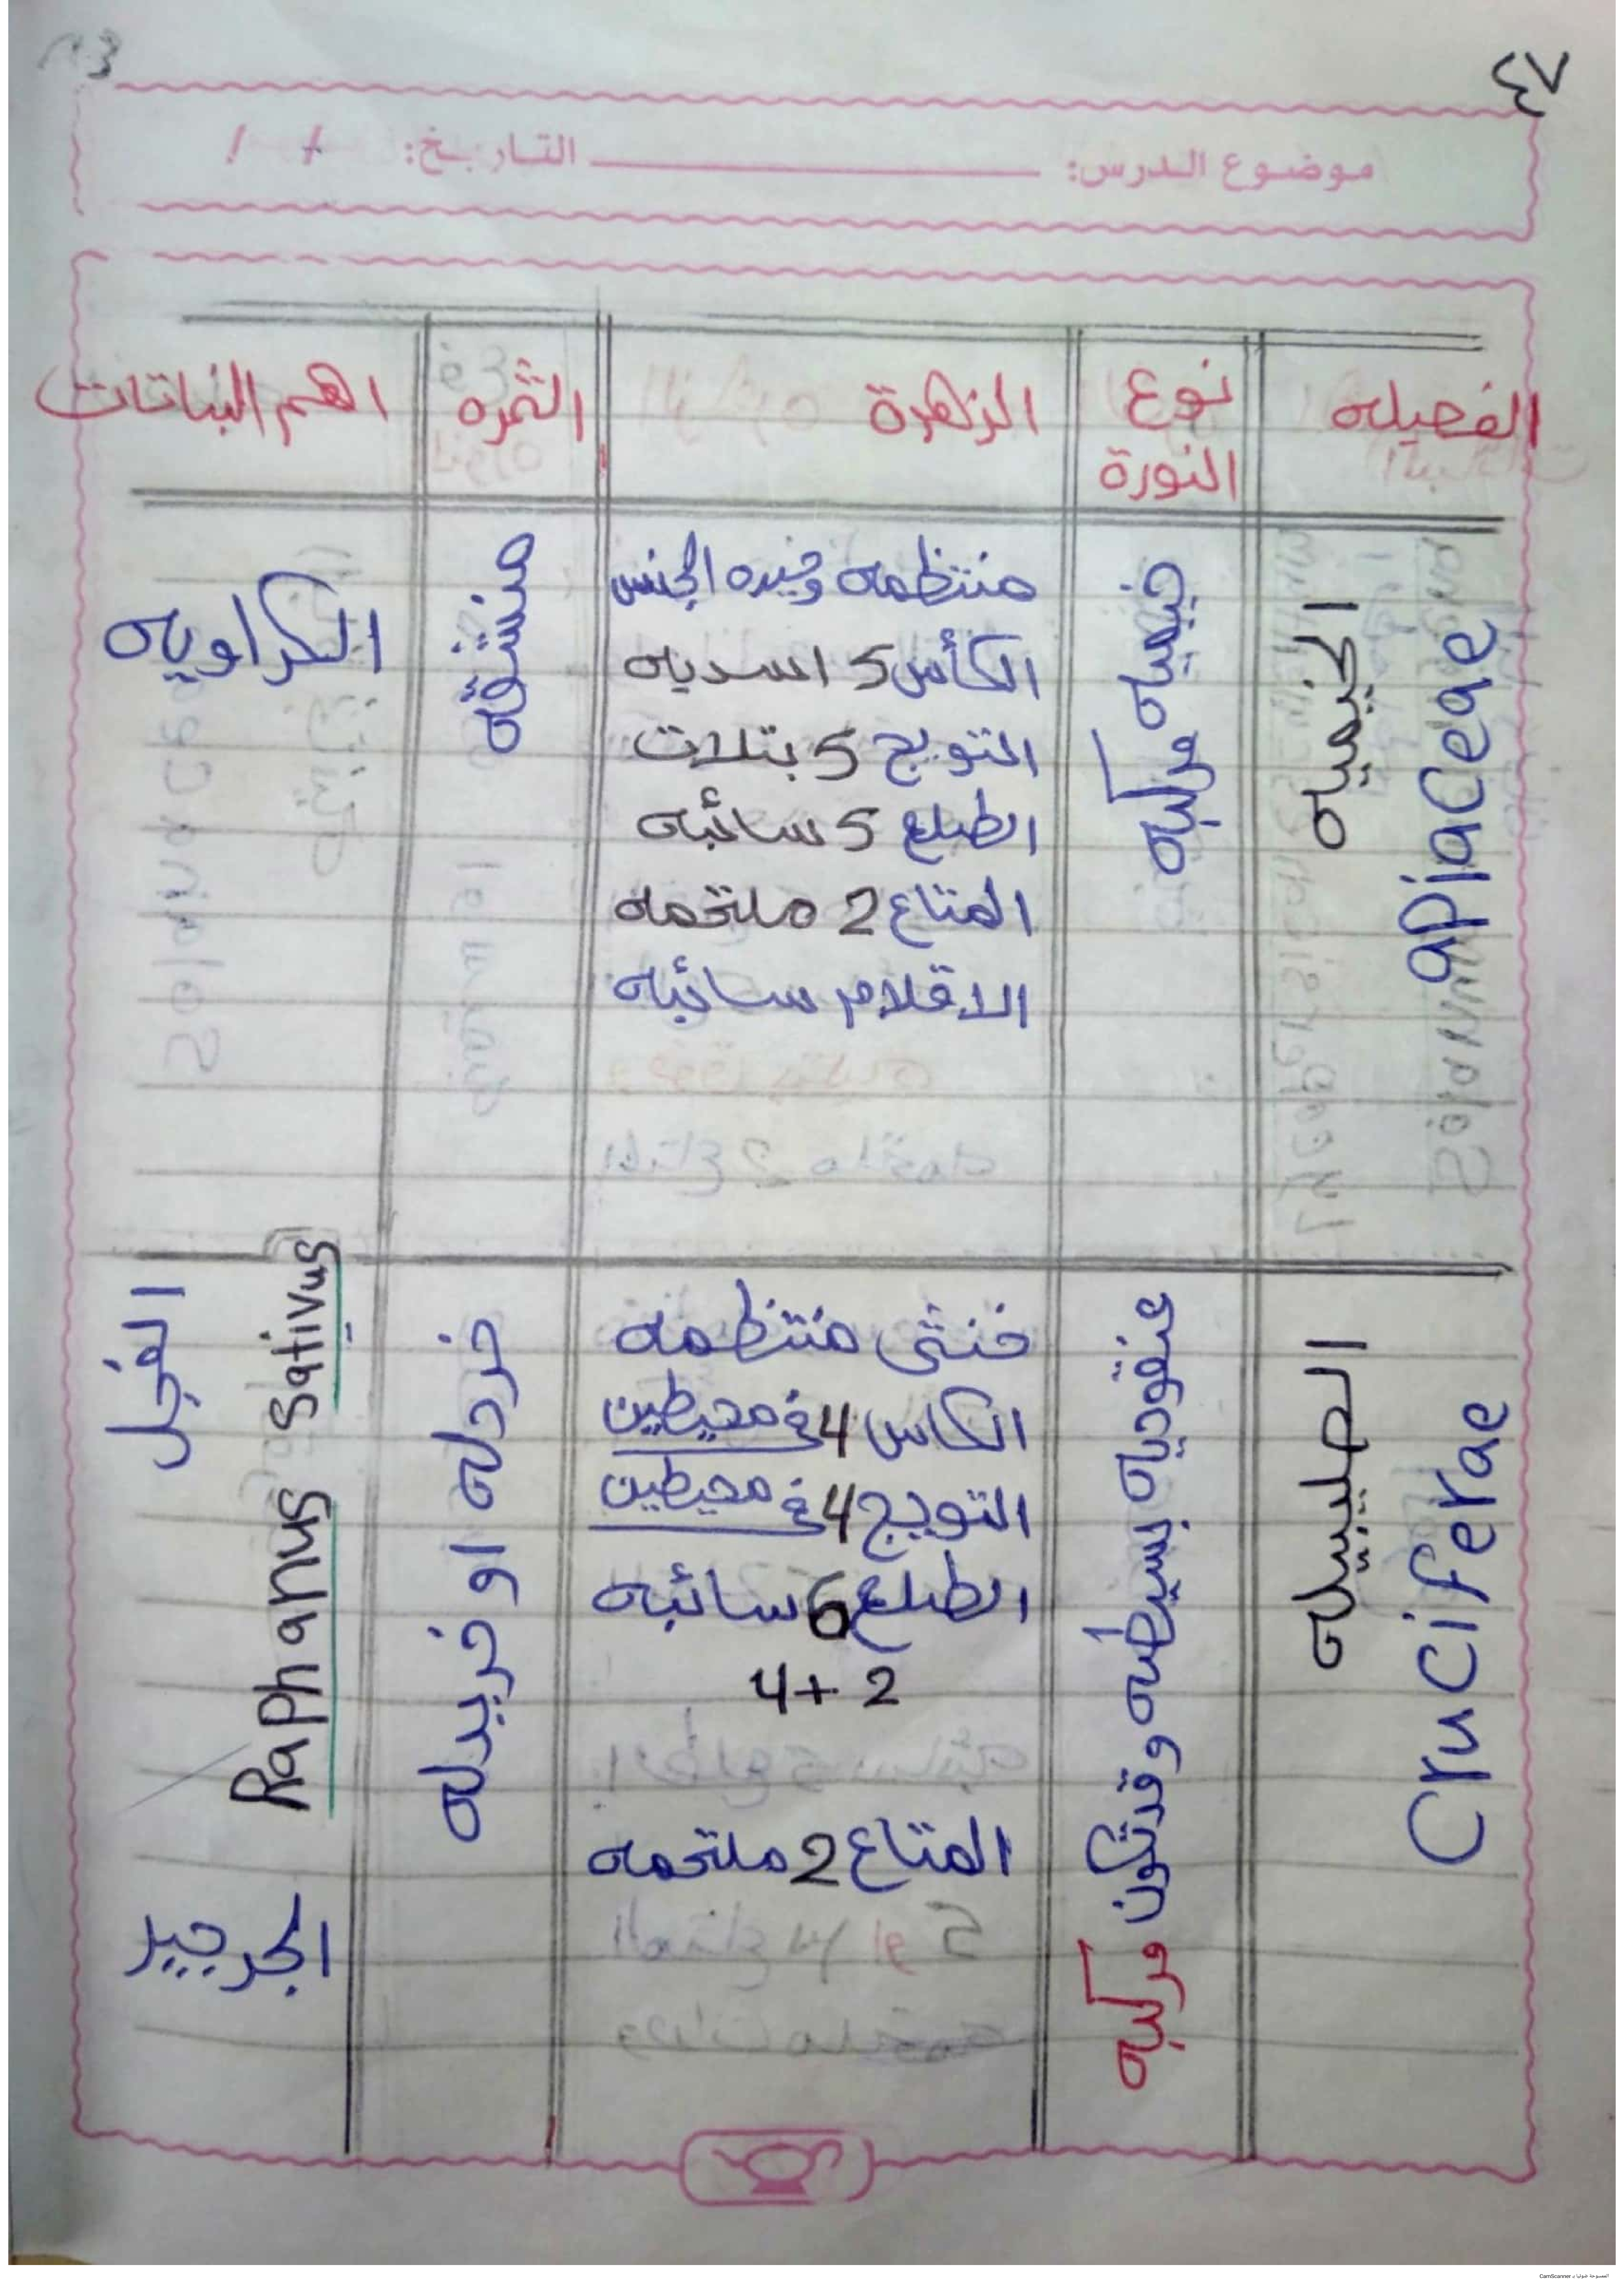 ٤٧
موضوع الدرس: التاريخ: / /
الفصيله
نوع النورة
الزهرة
الثمره
اهم النباتات
الخيميه
apiaceae
خيميه مركبه
منتظمه وحيده الجنس
الكأس 5 اسديه
التويج 5 بتلات
الطلع 5 سائبه
المتاع 2 ملتحمه
الاقلام سائبه
منشقه
الكراويه
الصليبيله
Cruciferae
عنقوديه بسيطه وقد تكون مركبه
خنثى منتظمه
الكاس 4 في محيطين
التويج 4 في محيطين
الطلع 6 سائبه
4+2
المتاع 2 ملتحمه
خردله او خريدله
الفجل
Raphanus Sativus
الجرجير
الممسوحة ضوئيا بـ CamScanner